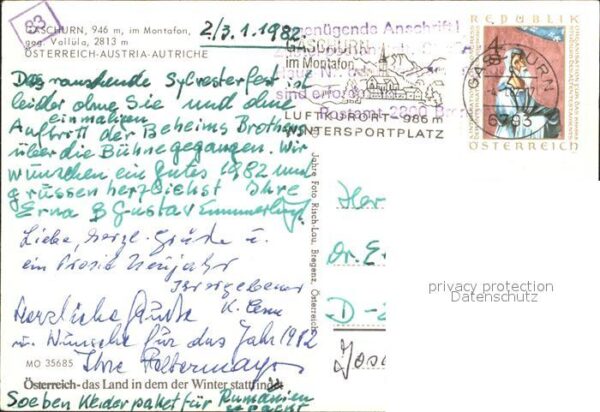 83
GASCHURN, 946 m, im Montafon,
geg. Vallula, 2813 m
ÖSTERREICH-AUSTRIA-AUTRICHE
2/3.1.1982
Das rauschende Sylvesterfest ist
leider ohne Sie und ohne
einmaligen
Auftritt der Beheims Brothers
über die Bühne gegangen. Wir
wünschen ein gutes 1982 und
grüssen herzlichst Ihre
Erna & Gustav
Liebe, herzl. Grüße u.
ein Prosit Neujahr
Ihr ergebener
K.
Herzliche Grüße
u. Wünsche für das Jahr 1982
Ihre
MO 35685
Österreich-das Land in dem der Winter stattfindet
Soeben Kleiderpaket für Rumänien
gepackt
Jahre Foto Risch-Lau, Bregenz, Österreich
genügende Anschrift!
sind
GASCHURN
im Montafon
LUFTKURORT - 986 m
WINTERSPORTPLATZ
REPUBLIK
4
S
GASCHURN
6793
ÖSTERREICH
Her
Dr. E
D-2
privacy protection
Datenschutz